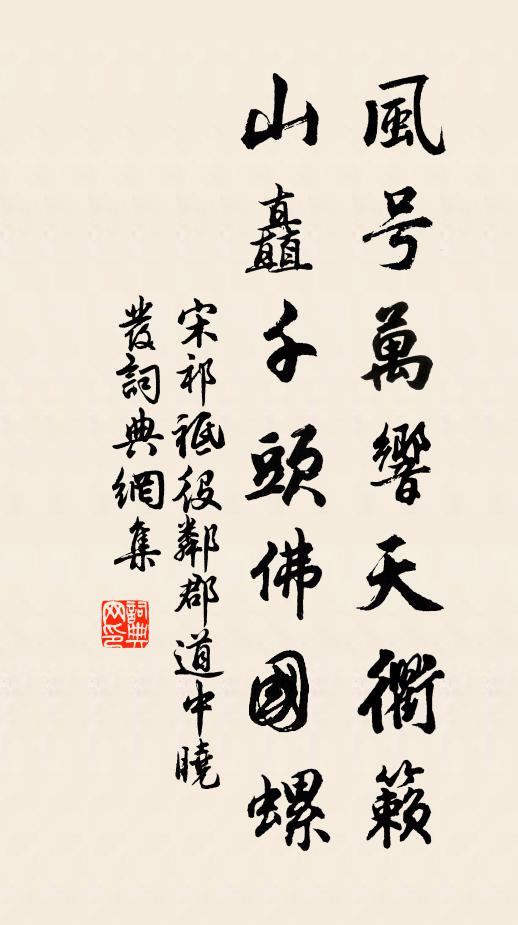 風号萬響天衢籟
山矗千頭佛國螺
宋祁祗役鄰郡道中曉
發詞典網集
詞典
网印